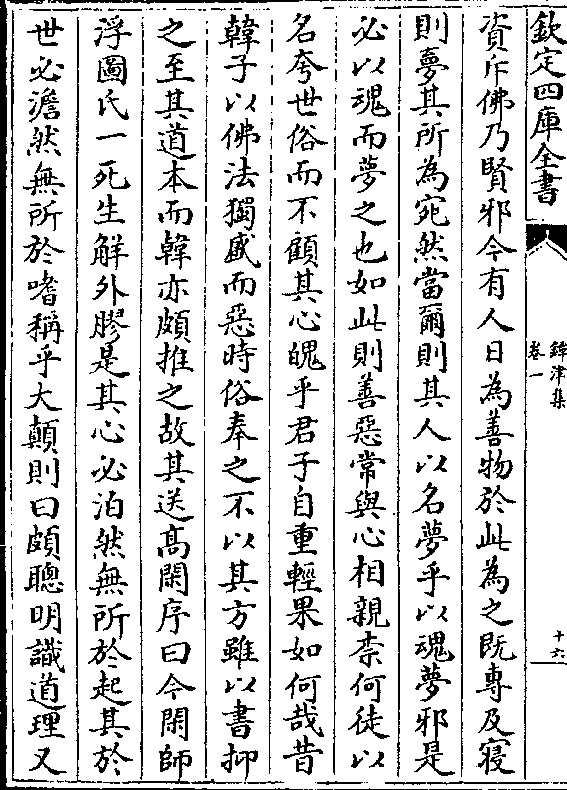 欽定四庫全書
鐔津集
卷一
十六
資斥佛乃賢邪今有人日為善物於此為之既專及寢
則夢其所為宛然當爾則其人以名夢乎以魂夢邪是
必以魂而夢之也如此則善惡常與心相親柰何徒以
名夸世俗而不顧其心魄乎君子自重輕果如何哉昔
韓子以佛法獨盛而惡時俗奉之不以其方雖以書抑
之至其道本而韓亦頗推之故其送高閑序曰今閑師
浮圖氏一死生解外膠是其心必泊然無所於起其於
世必澹然無所於嗜稱乎大顛則曰頗聰明識道理又